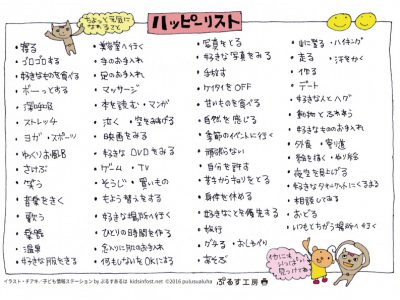 ちょっと元気に
なれること
ハッピーリスト
・寝る
・ゴロゴロする
・好きなものを食べる
・ボーっとする
・深呼吸
・ストレッチ
・ヨガ・スポーツ
・ゆっくりお風呂
・さけぶ
・笑う
・音楽をきく
・歌う
・楽器
・温泉
・好きな服をきる
・美容室へ行く
・手のお手入れ
・足のお手入れ
・マッサージ
・本を読む・マンガ
・泣く ・空をみあげる
・映画をみる
・好きなDVDをみる
・ゲーム ・TV
・そうじ ・買いもの
・もよう替えをする
・好きな場所へ行く
・ひとりの時間を作る
・念入りに肌のお手入れ
・何もしないをOKにする
・写真をとる
・好きな写真をみる
・手放す
・ケイタイをOFF
・甘いものを食べる
・自然を感じる
・季節のイベントに行く
・頑張らない
・自分を許す
・苦手からキョリをとる
・身体を休める
・好きなことを優先する
・旅行
・グチる ・おしゃべり
・あそぶ
・山に登る ・ハイキング
・走る ・汗をかく
・作る
・デート
・好きな人とハグ
・動物とふれ合う
・好きなもののお手入れ
・外食 ・寄り道
・絵を描く ・ぬり絵
・夜空を見上げる
・好きなタオルケットにくるまる
・相談してみる
・おどる
・いつもとちがう場所へ行く
他にも
いっぱい
見つけてね
イラスト・チアキ/子ども情報ステーション by ぷるすあるは kidsinfost.net ©2016 pulusualuha
ぷるす工房